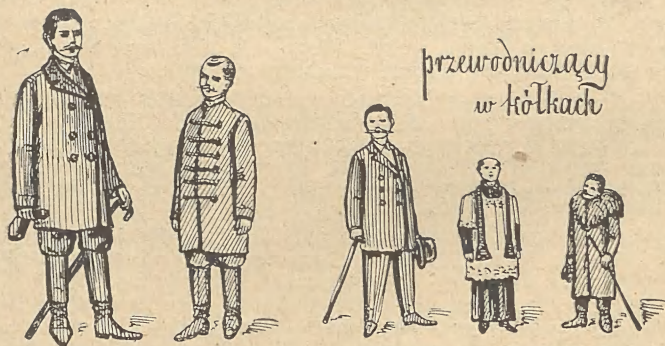 przewodniczący
w kółkach